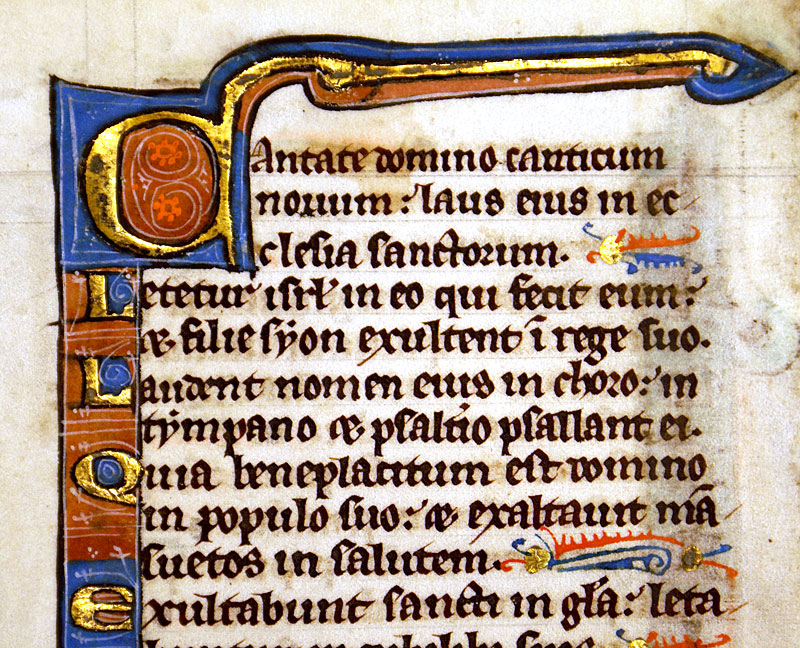 CAntate domino canticum
nouum: laus eius in ec-
clesia sanctorum.
Letetur isrł in eo qui fecit eum:
& filie sẏon exultent ī rege suo.
Laudent nomen eius in choro: in
tẏmpano & psaltio psallant ei.
Quia beneplacitum est domino
in populo suo: & exaltauit mā
suetos in salutem.
Exultabunt sancti in gła: leta